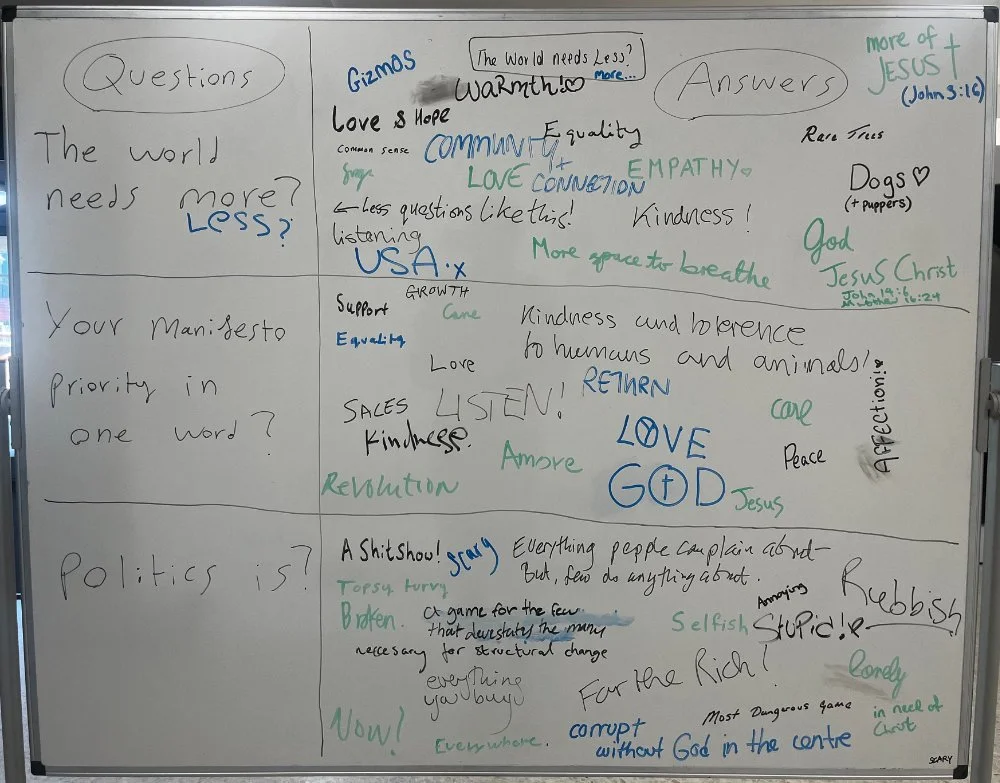 Questions
The World needs Less?
more...
Answers
more of
JESUS
(John 3:16)
Gizmos
WaRmth!♡
The world
needs more?
Less?
Love & Hope
Common sense
COMMUNITY
+
Equality
Rare Trees
LOVE
CONNETION
EMPATHY♡
Dogs ♡
(+ puppers)
← Less questions like this!
Kindness !
listening
USA.x
More space to breathe
God
Jesus Christ
John 14:6
Matthew 16:24
Your Manifesto
priority in
one word?
Support
GROWTH
Care
Equality
Kindness and tolerence
to humans and animals!
Love
RETURN
SALES
LISTEN!
care
Kindness.
LOVE
AFFECTION!
Amore
Peace
Revolution
GOD
Jesus
Politics is?
A Shitshow!
Scary
Everything people complain about—
But, few do anything about.
Topsy turvy
Broken.
a game for the few
that devestates the many
neccesary for structural change
Selfish
Annoying
Stupid!
Rubbish
everything
you buy
For the Rich!
lonely
Now!
Everywhere.
Most Dangerous Game
in need of
Christ
corrupt
without God in the centre
SCARY